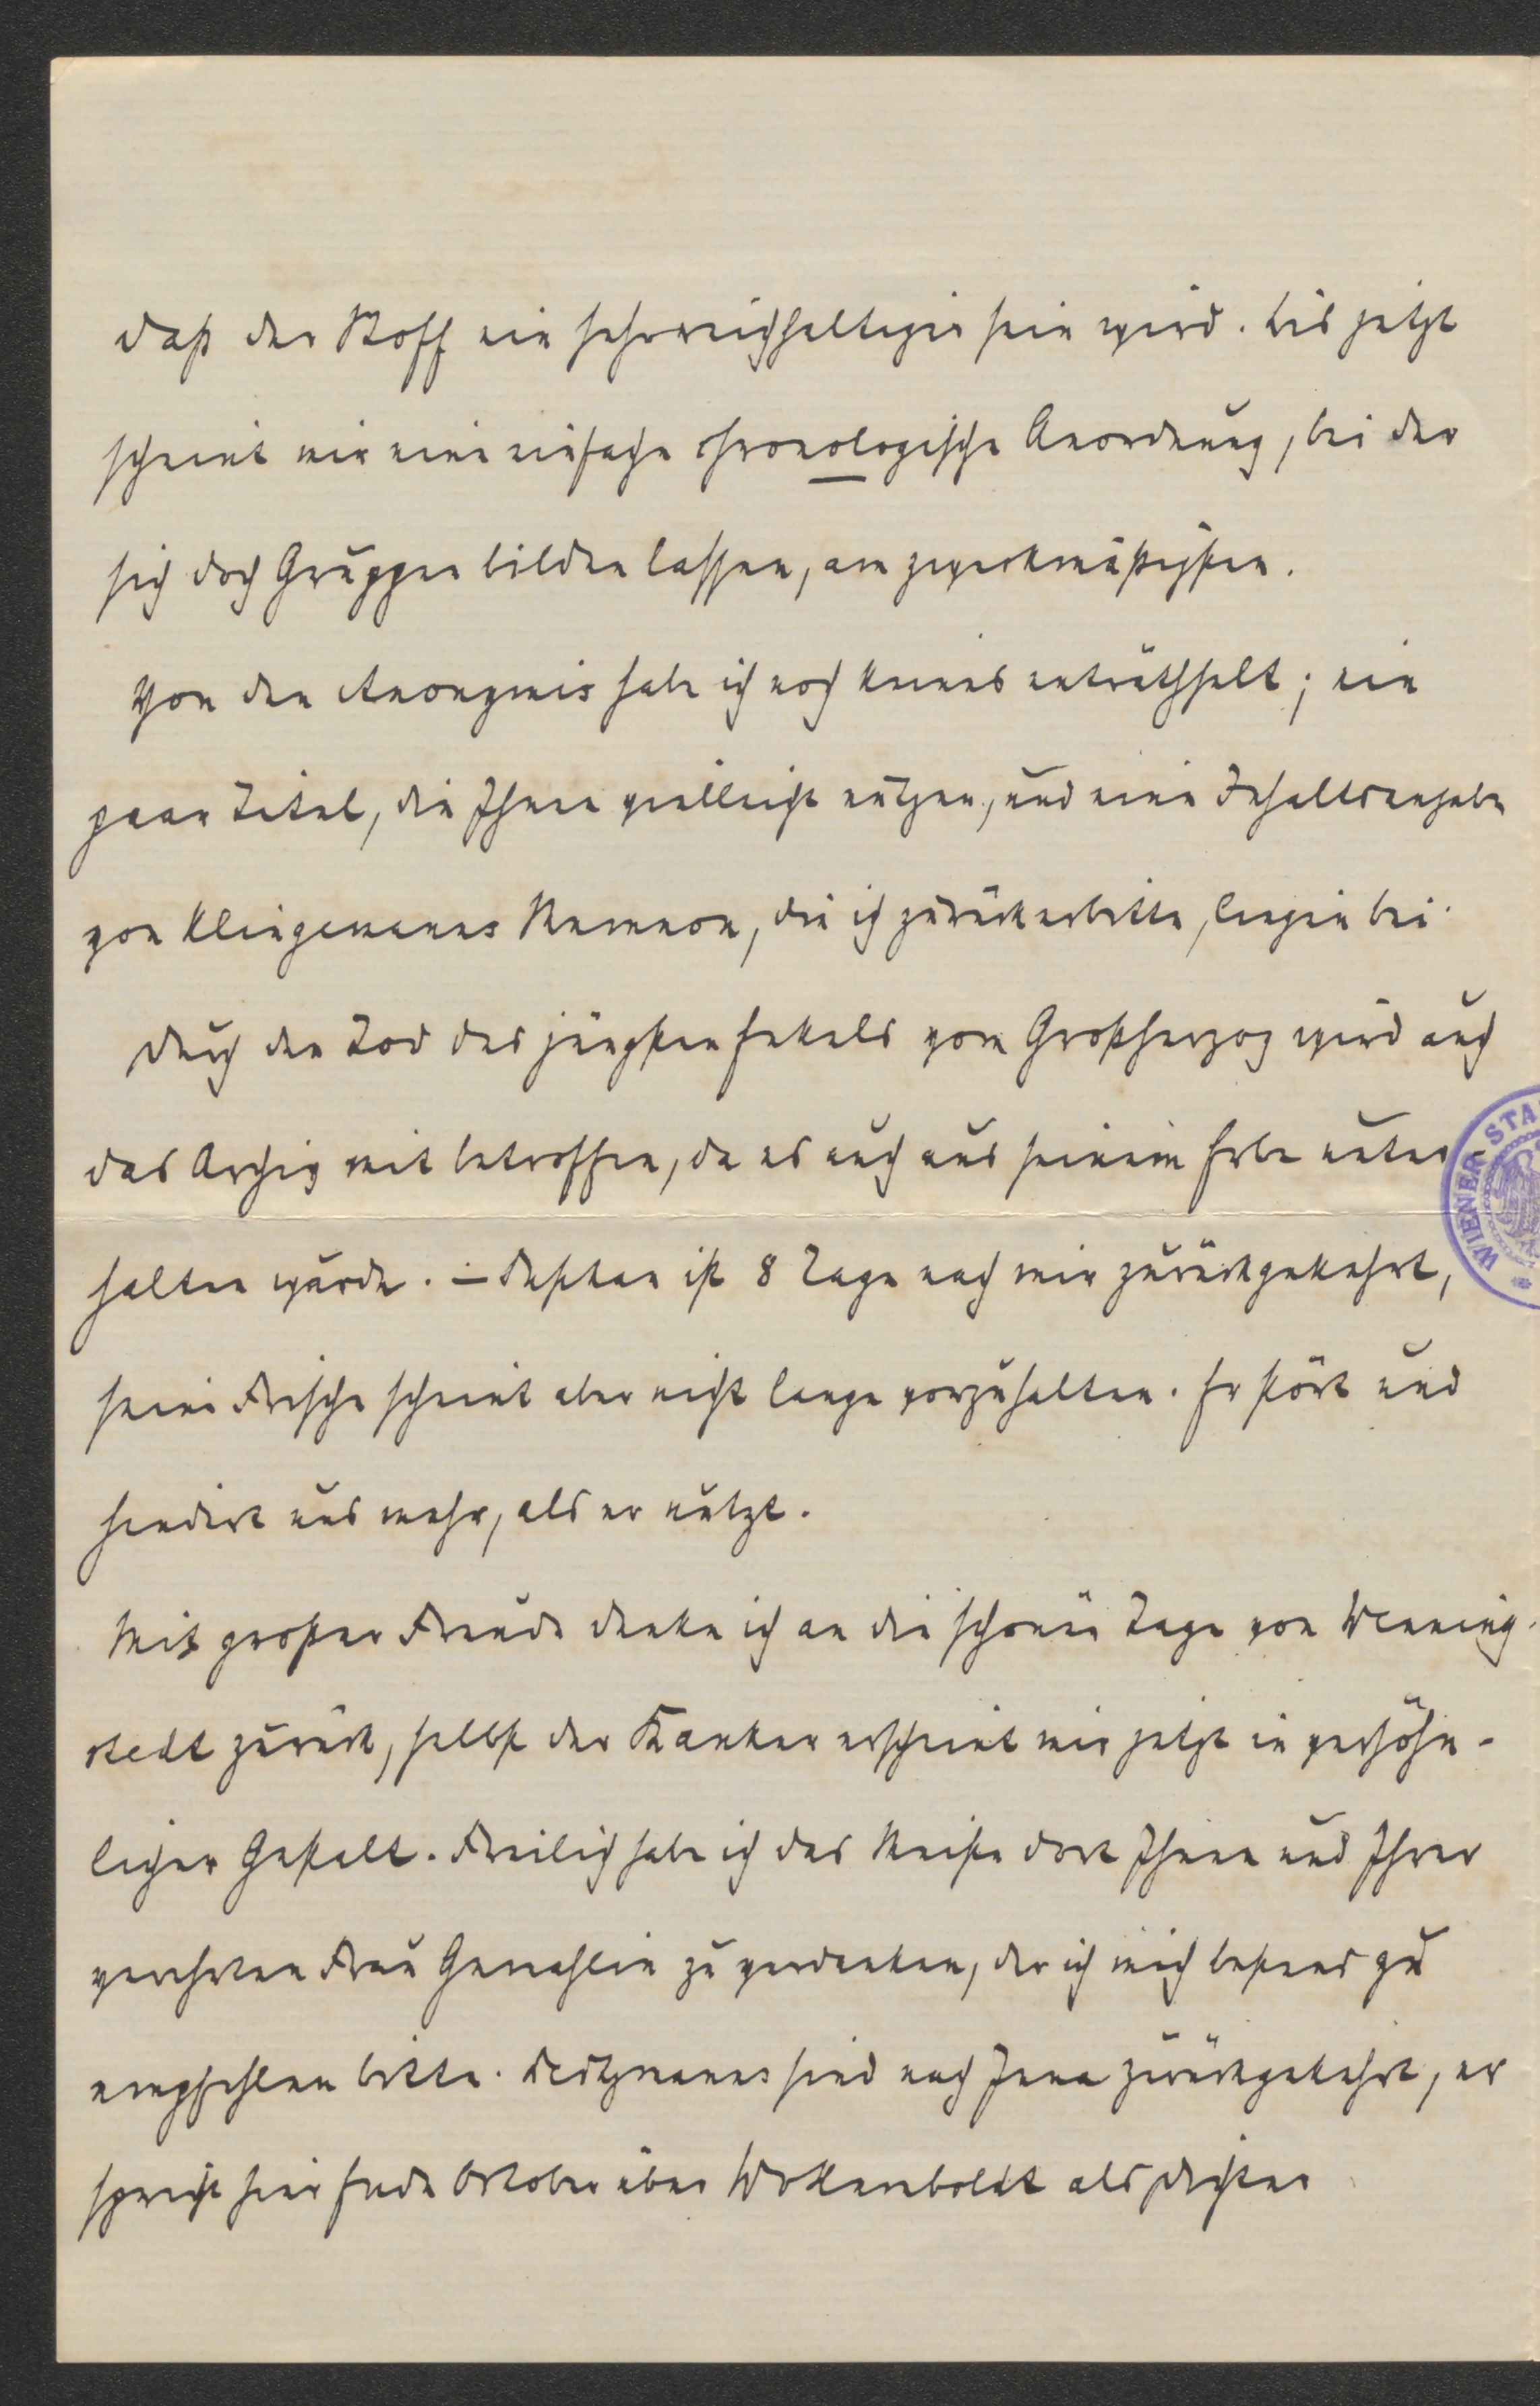 daß der Stoff ein sehr reichhaltiger sein wird. bis jetzt
scheint mir eine einfache chronologische Anordnung, bei der
sich doch Gruppen bilden lassen, am zweckmäßigsten.
Von den Anonymis habe ich noch keines enträthselt; ein
paar Titel, die Ihnen vielleicht nützen, und eine Inhaltsangabe
von Klingemanns Memnon, die ich zurückerbitte, liegen bei.
Durch den Tod des jüngsten Enkels vom Großherzog wird auch
das Archiv mit betroffen, da es auch aus seinem Erbe unter-
halten würde. – Suphan ist 8 Tage nach mir zurückgekehrt,
seine Frische scheint aber nicht lange vorzuhalten. Er stört und
hindert uns mehr, als er nützt.
Mit großer Freude denke ich an die schönen Tage von Wenning-
stedt zurück, selbst der Kanker erscheint mir jetzt in versöhn-
licher Gestalt. Freilich habe ich das Meiste dort Ihnen und Ihrer
verehrten Frau Gemahlin zu verdanken, der ich mich bestens zu
empfehlen bitte. Leitzmanns sind nach Jena zurückgekehrt, er
spricht hier Ende Oktober über W v Humboldt als Dichter
WIENER STA